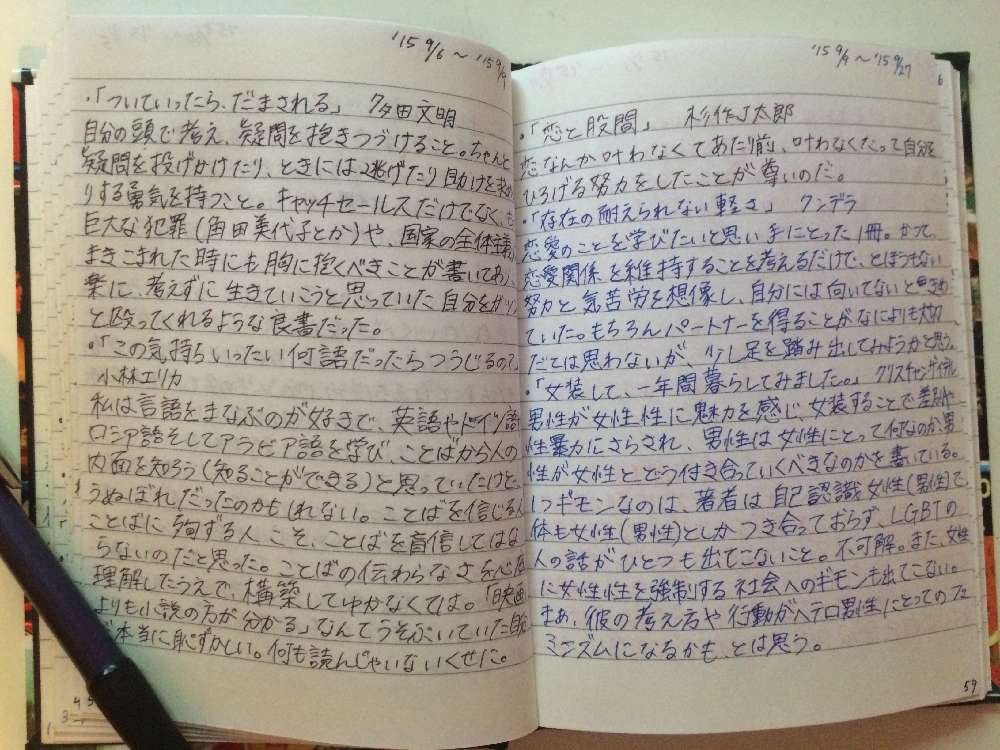 '15 9/6 ～ '15 9/9
・「ついていったら、だまされる」 多田文明
自分の頭で考え、疑問を抱きつづけること。ちゃんと
疑問を投げかけたり、ときには逃げたり助けを求め
りする勇気を持つこと。キャッチセールスだけでなく、も
巨大な犯罪(角田美代子とか)や、国家の全体主義
まきこまれた時にも胸に抱くべきことが書いてあり、
楽に、考えずに生きていこうと思っていた自分をガツン
と殴ってくれるような良書だった。
・「この気持ちいったい何語だったらつうじるの?」
小林エリカ
私は言語をまなぶのが好きで、英語やドイツ語
ロシア語そしてアラビア語を学び、ことばから人の
内面を知ろう(知ることができる)と思っていたけど、
うぬぼれだったのかもしれない。ことばを信じる人
ことばに殉ずる人こそ、ことばを盲信してはな
らないのだと思った。ことばの伝わらなさを心底
理解したうえで、構築してゆかなくては。「映画
よりも小説の方が分かる」なんてうそぶいていた自分
が本当に恥ずかしい。何も読んじゃいないくせに。
'15 9/9 ～ '15 9/27
・「恋と股間」 杉作J太郎
恋なんか叶わなくてあたり前、叶わなくたって自分を
ひろげる努力をしたことが尊いのだ。
・「存在の耐えられない軽さ」 クンデラ
恋愛のことを学びたいと思い手にとった1冊。かつて、
恋愛関係を維持することを考えるだけで、とほうもない
努力と気苦労を想像し、自分には向いてないと思
ていた。もちろんパートナーを得ることがなによりも大切
だとは思わないが、少し足を踏み出してみようかと思う。
・「女装して、一年間暮らしてみました。」 クリスチャン・ザイデル
男性が女性性に魅力を感じ、女装することで差別や
性暴力にさらされ、男性は女性にとって何なのか、男
性が女性とどう付き合っていくべきなのかを書いている。
1つギモンなのは、著者は自己認識女性(男性)で、
体も女性(男性)としかつき合っておらず、LGBTの
人の話がひとつも出てこないこと。不可解。また、女性
に女性性を強制する社会へのギモンも出てこない。
まあ、彼の考え方や行動がヘテロ男性にとってのフェ
ミニズムになるかも、とは思う。
59